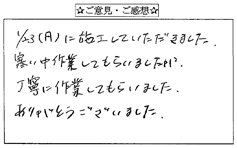 ☆ご意見・ご感想☆
1/23(月)に施工していただきました。
寒い中作業してもらいましたが、
丁寧に作業してもらいました。
ありがとうございました。